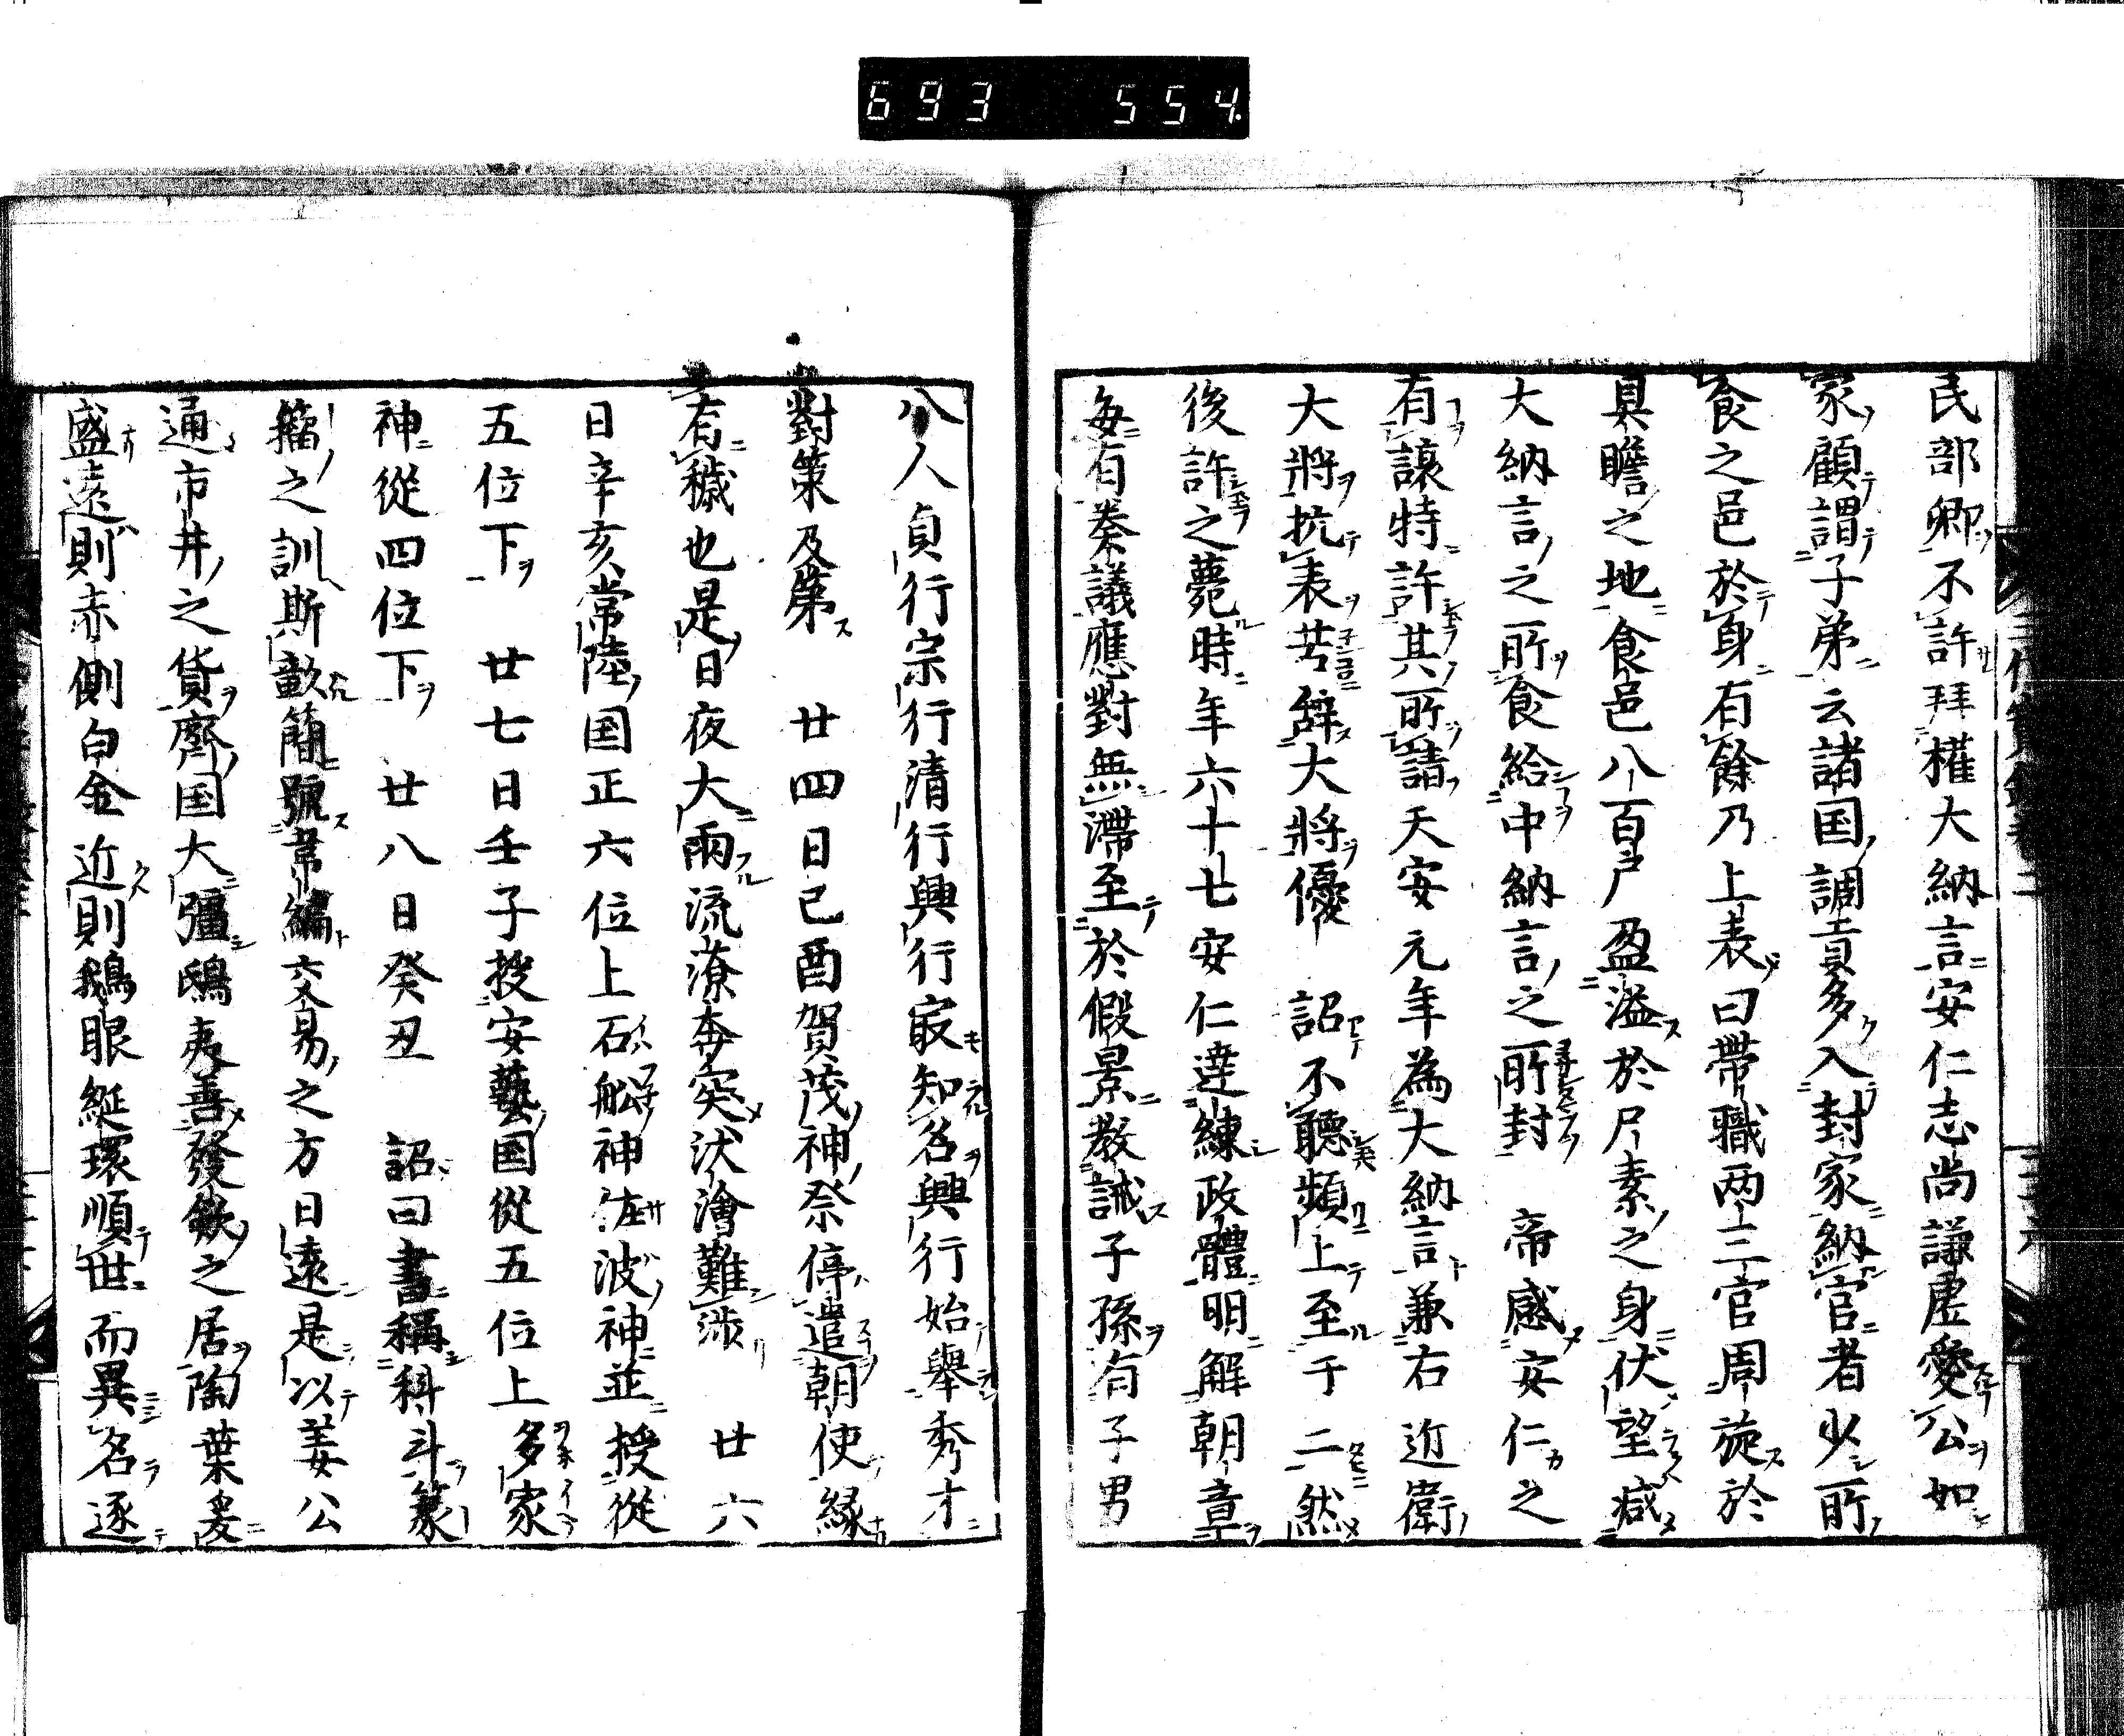 693 554.
民部卿不許拜權大納言安仁志尚謙虛愛公如
家顧謂子弟云諸国調貢多入封家納官者少所
食之邑於身有餘乃上表曰帶職两三官周旋於
具瞻之地食邑八百戶盈溢於尺素之身伏望減
大納言之所食給中納言之所封 帝感安仁之
有讓特許其所請天安元年為大納言兼右近衛
大將抗表苦辭大將優 詔不聽頻上至于二然
後許之薨時年六十七安仁達練政體明解朝章
每有奏議應對無滯至於假景教誡子孫有子男
八人貞行宗行清行興行㝡知名興行始舉秀才
對策及第 廿四日己酉賀茂神祭停遣朝使緣
有穢也是日夜大雨流潦奔突汱澮難涉 廿六
日辛亥常陸国正六位上石舩神佐波神並授從
五位下 廿七日壬子授安藝国從五位上多家
神從四位下 廿八日癸丑 詔曰書稱科斗篆
籀之訓斯歖簡號韋編交易之方日遠是以姜公
通市井之貨齊国大彊鴟夷善發斂之居陶葉爰
盛遠則赤側白金近則鵝眼綖環順世而異名逐